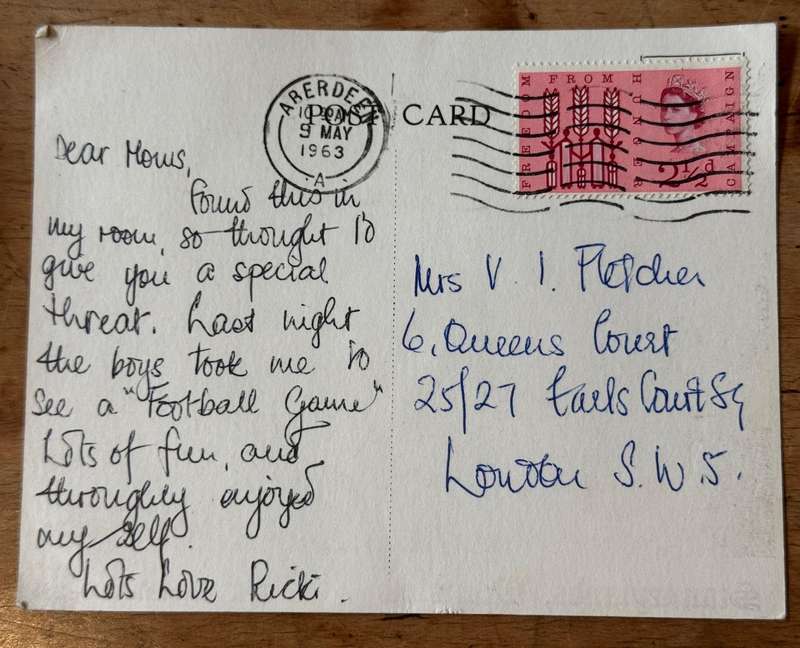 POST CARD
ABERDEEN
9 MAY
1963
A
FREEDOM FROM HUNGER CAMPAIGN
2½d
Dear Moms,
Found this in
my room, so thought to
give you a special
threat. Last night
the boys took me to
see a "Football Game"
Lots of fun, and
throughly enjoyed
my self.
Lots Love Ricki.
Mrs V. I. Fletcher
6, Queens Court
25/27 Earls Court Sq
London S.W.5.